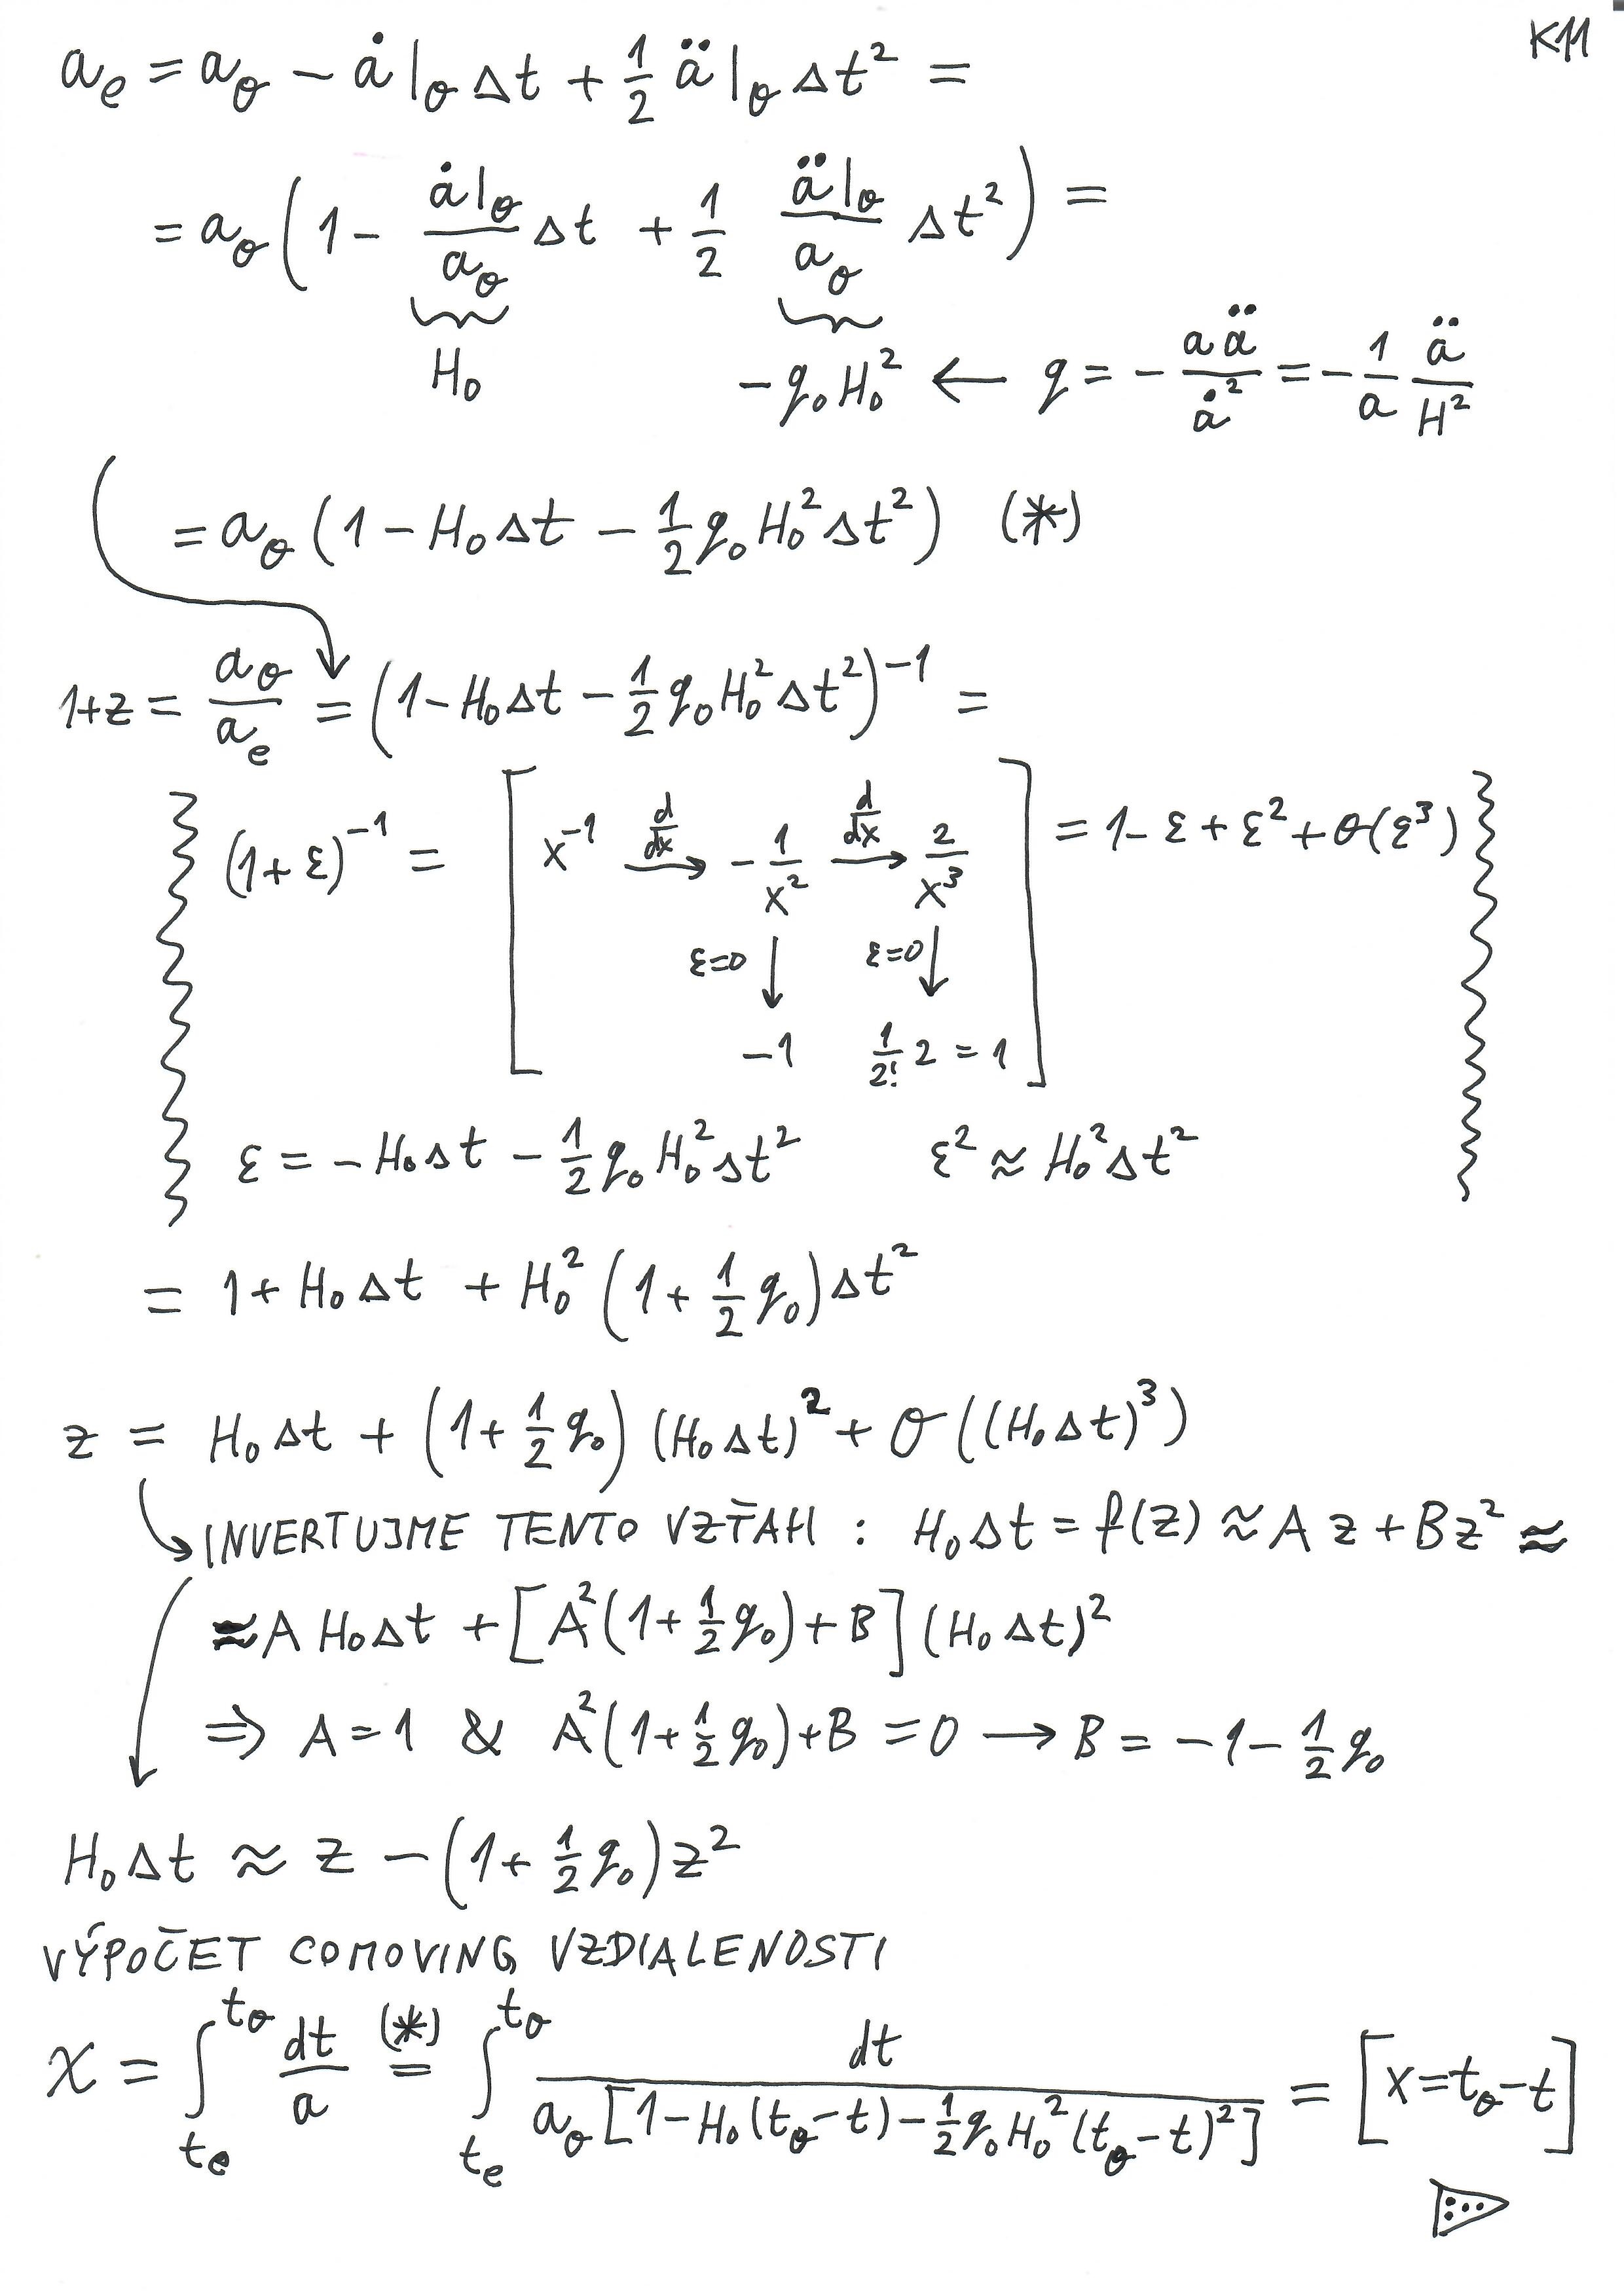 K11
a_e = a_o − ȧ|_o Δt + 1/2 ä|_o Δt² =
= a_o (1 − ȧ|_o/a_o Δt + 1/2 ä|_o/a_o Δt²) =
H₀   −q₀H₀² ← q = − aä/ȧ² = − 1/a ä/H²
= a_o (1 − H₀Δt − 1/2 q₀H₀²Δt²) (*)
1+z = a_o/a_e = (1 − H₀Δt − 1/2 q₀H₀²Δt²)⁻¹ =
(1+ε)⁻¹ = [x⁻¹ →(d/dx) − 1/x² →(d/dx) 2/x³] = 1 − ε + ε² + O(ε³)
ε=0 ↓   ε=0 ↓
−1   1/2! 2 = 1
ε = −H₀Δt − 1/2 q₀H₀²Δt²   ε² ≈ H₀²Δt²
= 1 + H₀Δt + H₀² (1 + 1/2 q₀) Δt²
z = H₀Δt + (1 + 1/2 q₀) (H₀Δt)² + O((H₀Δt)³)
INVERTUJME TENTO VZŤAH : H₀Δt = f(z) ≈ A z + B z² ≈
≈ A H₀Δt + [A²(1 + 1/2 q₀) + B] (H₀Δt)²
⇒ A = 1 & A²(1 + 1/2 q₀) + B = 0 → B = −1 − 1/2 q₀
H₀Δt ≈ z − (1 + 1/2 q₀) z²
VÝPOČET COMOVING VZDIALENOSTI
χ = ∫_{t_e}^{t_o} dt/a =(*) ∫_{t_e}^{t_o} dt / a_o[1 − H₀(t_o−t) − 1/2 q₀H₀²(t_o−t)²] = [x = t_o − t]